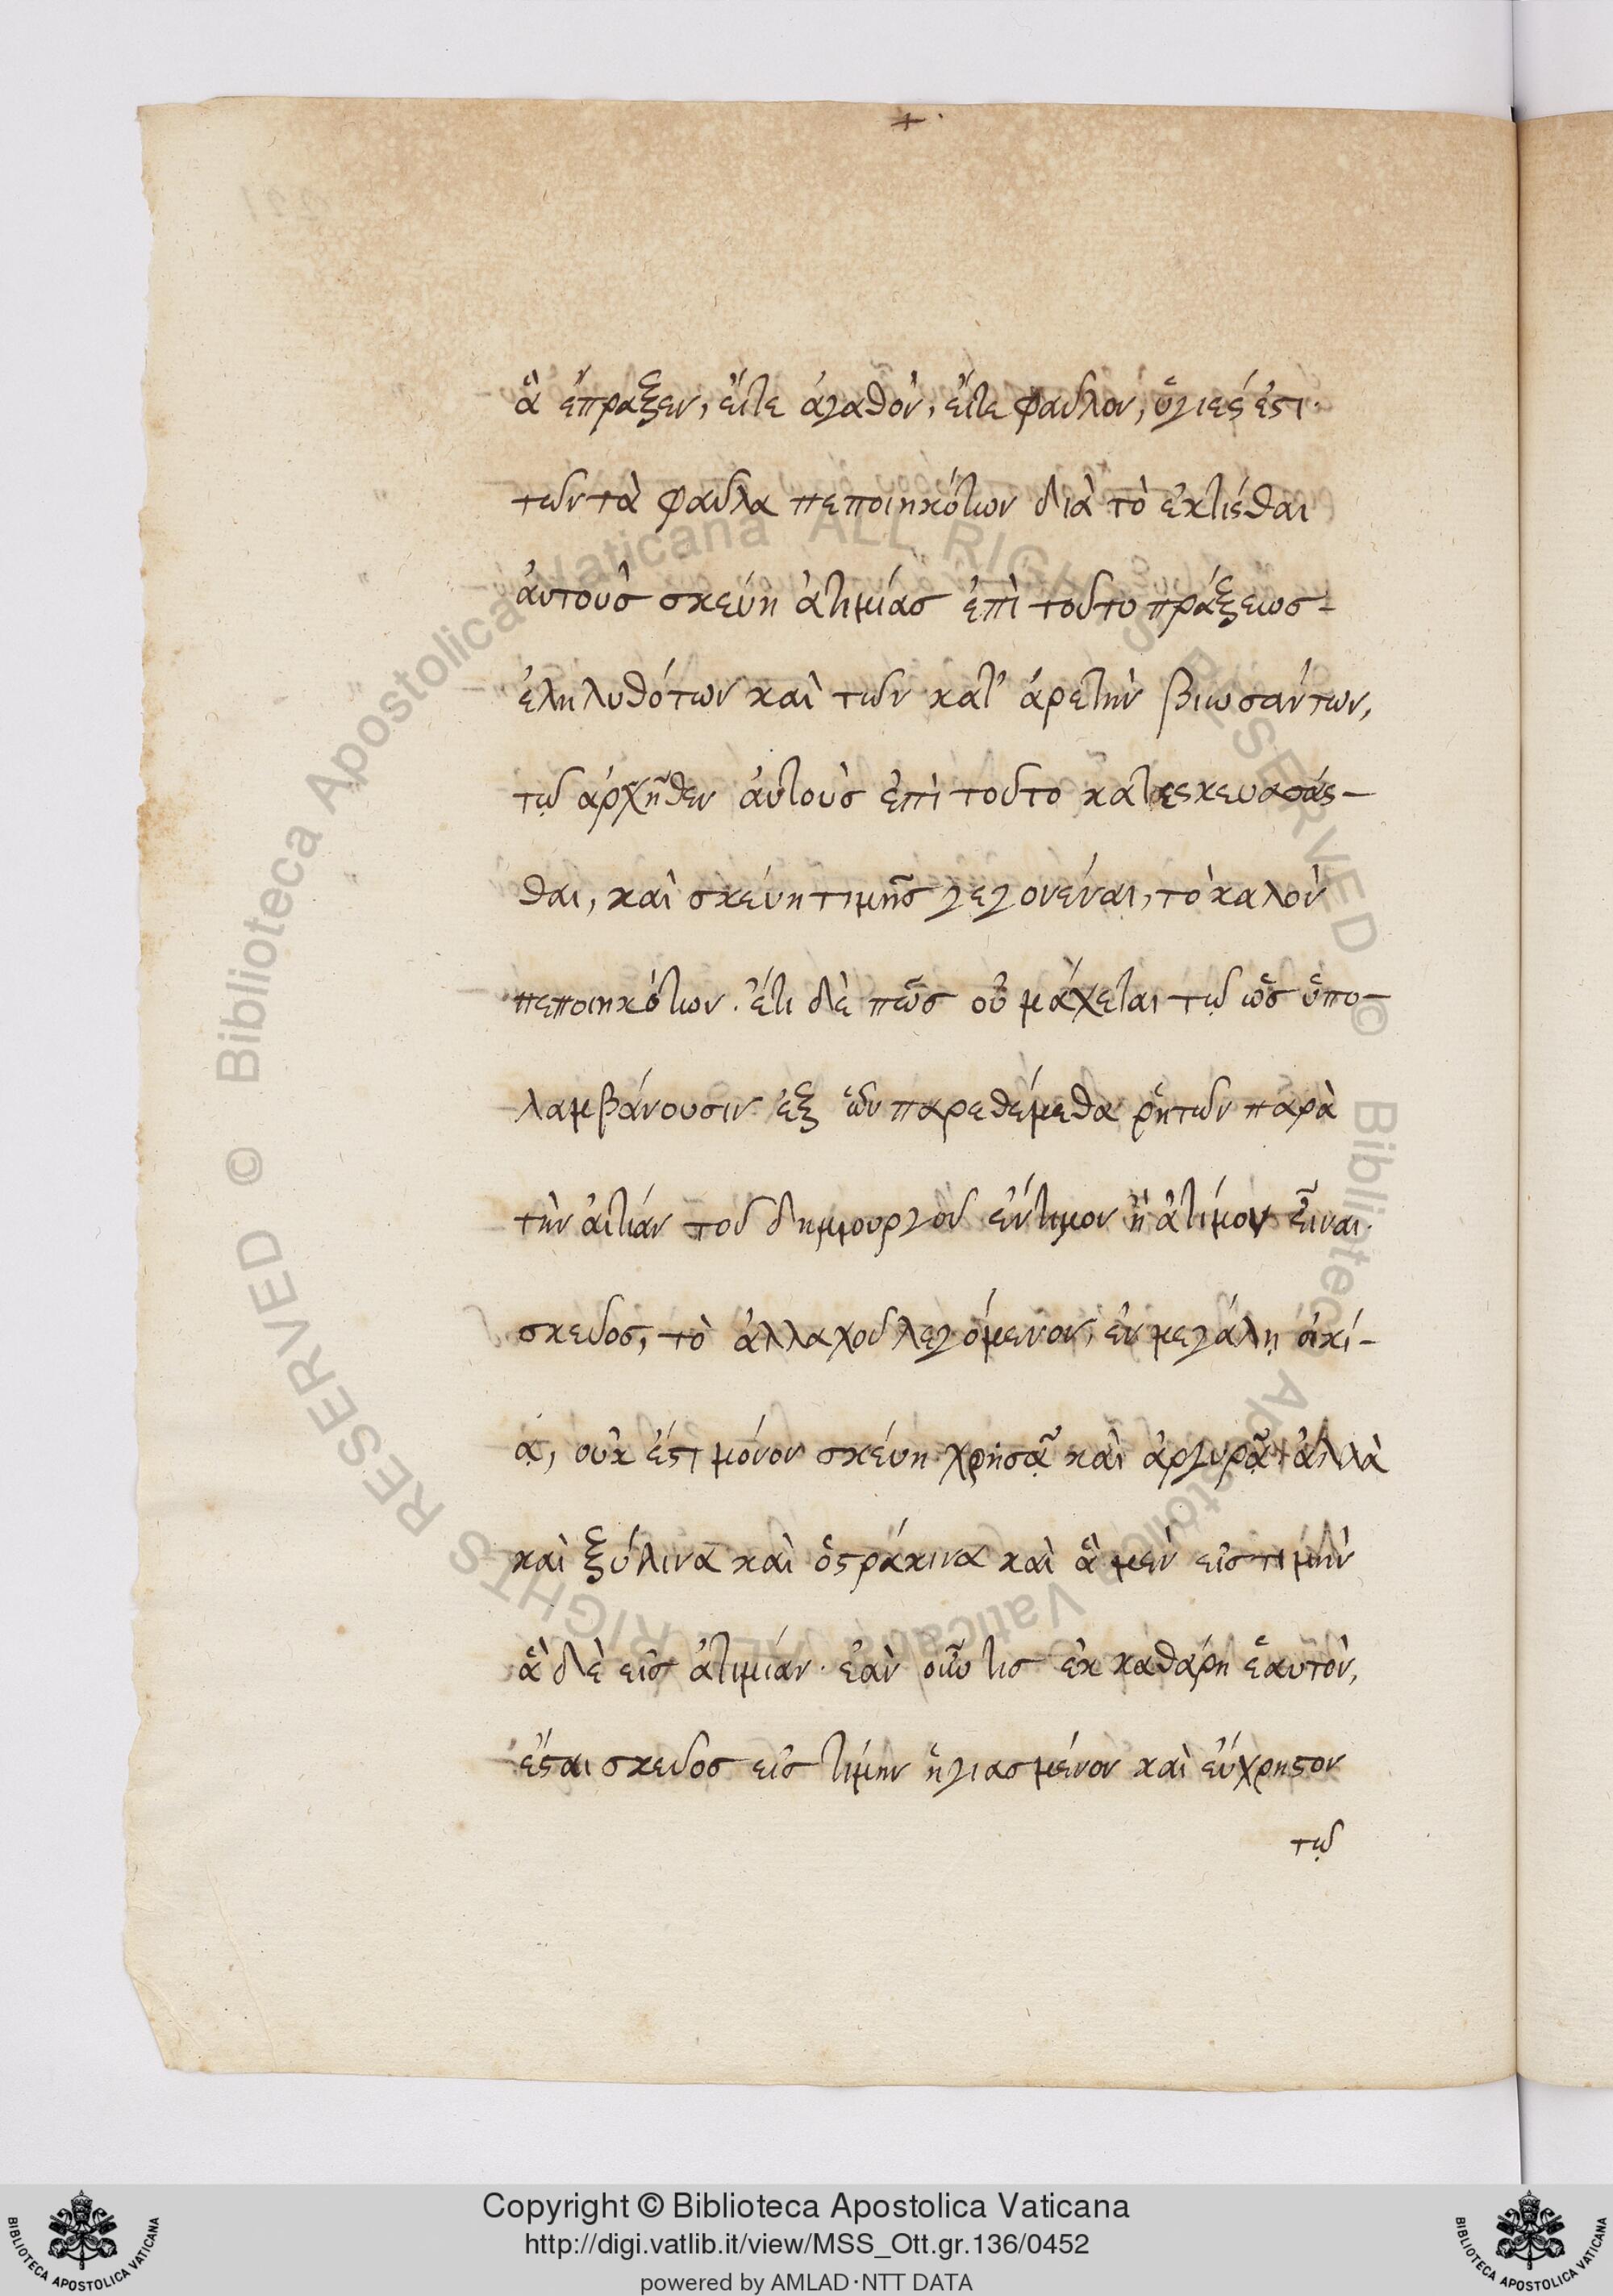 ἃ ἔπραξεν, εἴτε ἀγαθὸν, εἴτε φαῦλον, ὑγιές ἐστι·
τῶν τὰ φαῦλα πεποιηκότων διὰ τὸ ἐκτίσθαι
ἀυτοὺς σκεύη ἀτιμίας ἐπὶ τοῦτο πράξεως
ἐληλυθότων καὶ τῶν κατ' ἀρετὴν βιωσάντων,
τῷ ἀρχῆθεν ἀυτοὺς ἐπὶ τοῦτο κατεσκευασάσ-
θαι, καὶ σκέυη τιμῆς γεγονέναι, τὸ καλὸν
πεποιηκότων. ἔτι δὲ πῶς οὐ μάχεται τῷ ὡς ὑπο-
λαμβάνουσιν ἐξ ὧν παρεθέμεθα ῥητῶν παρὰ
τὴν ἀιτίαν τοῦ δημιουργοῦ ἔντιμον ἢ ἄτιμον εἶναι
σκεῦος, τὸ ἀλλαχοῦ λεγόμενον, ἐν μεγάλῃ ὀικί-
ᾳ, οὐκ ἔστι μόνον σκέυη χρησᾶ καὶ ἀργυρᾶ ἀλλὰ
καὶ ξύλινα καὶ ὀστράκινα καὶ ἃ μὲν εἰς τιμὴν
ἃ δὲ εἰς ἀτιμίαν. ἐὰν οὖν τις ἐκκαθάρῃ ἑαυτὸν,
ἔσται σκεῦος εἰς τίμην ἡγιασμένον καὶ εὔχρηστον
τῷ
Copyright © Biblioteca Apostolica Vaticana
http://digi.vatlib.it/view/MSS_Ott.gr.136/0452
powered by AMLAD·NTT DATA